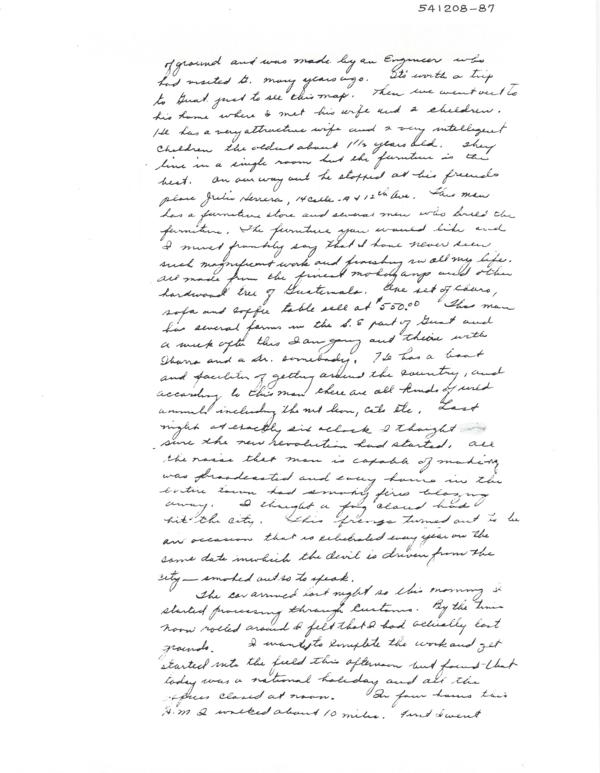 541208-87
of ground and was made by an Engineer who
had visited G. many years ago. Its worth a trip
to Guat just to see this map. Then we went out to
his home where I met his wife and 2 children.
He has a very attractive wife and 2 very intelligent
children the oldest about 1½ years old. They
live in a single room but the furniture is the
best. On our way out he stopped at his friends
place Julio Herrera, 14 Calle. A & 12th Ave. This man
has a furniture store and several men who build the
furniture. The furniture you would like and
I must frankly say that I have never seen
such magnificent work and finishing in all my life.
all made from the finest mahogany and other
hardwood tree of Guatemala. One set of chairs,
sofa and coffee table sell at $550.00 This man
has several farms in the S.E part of Guat and
a week after this I am going out there with
Ibarra and a Dr. somebody. He has a boat
and facilities of getting around the country, and
according to this man there are all kinds of wild
animals including the lion, cats etc. Last
night at exactly six oclock I thought
sure the new revolution had started. all
the noise that man is capable of making
was broadcasted and every home in the
entire town had smoky fires blazing
away. I thought a fog cloud had
hit the city. This frenzy turned out to be
an occasion that is celebrated every year on the
same date in which the devil is driven from the
city — smoked out so to speak.
The car arrived last night so this morning I
started processing through Customs. By the time
noon rolled around I felt that I had actually lost
grounds. I wanted to complete the work and get
started into the field this afternoon but found that
today was a national holiday and all the
offices closed at noon. In four hours this
A.M I walked about 10 miles. First I went